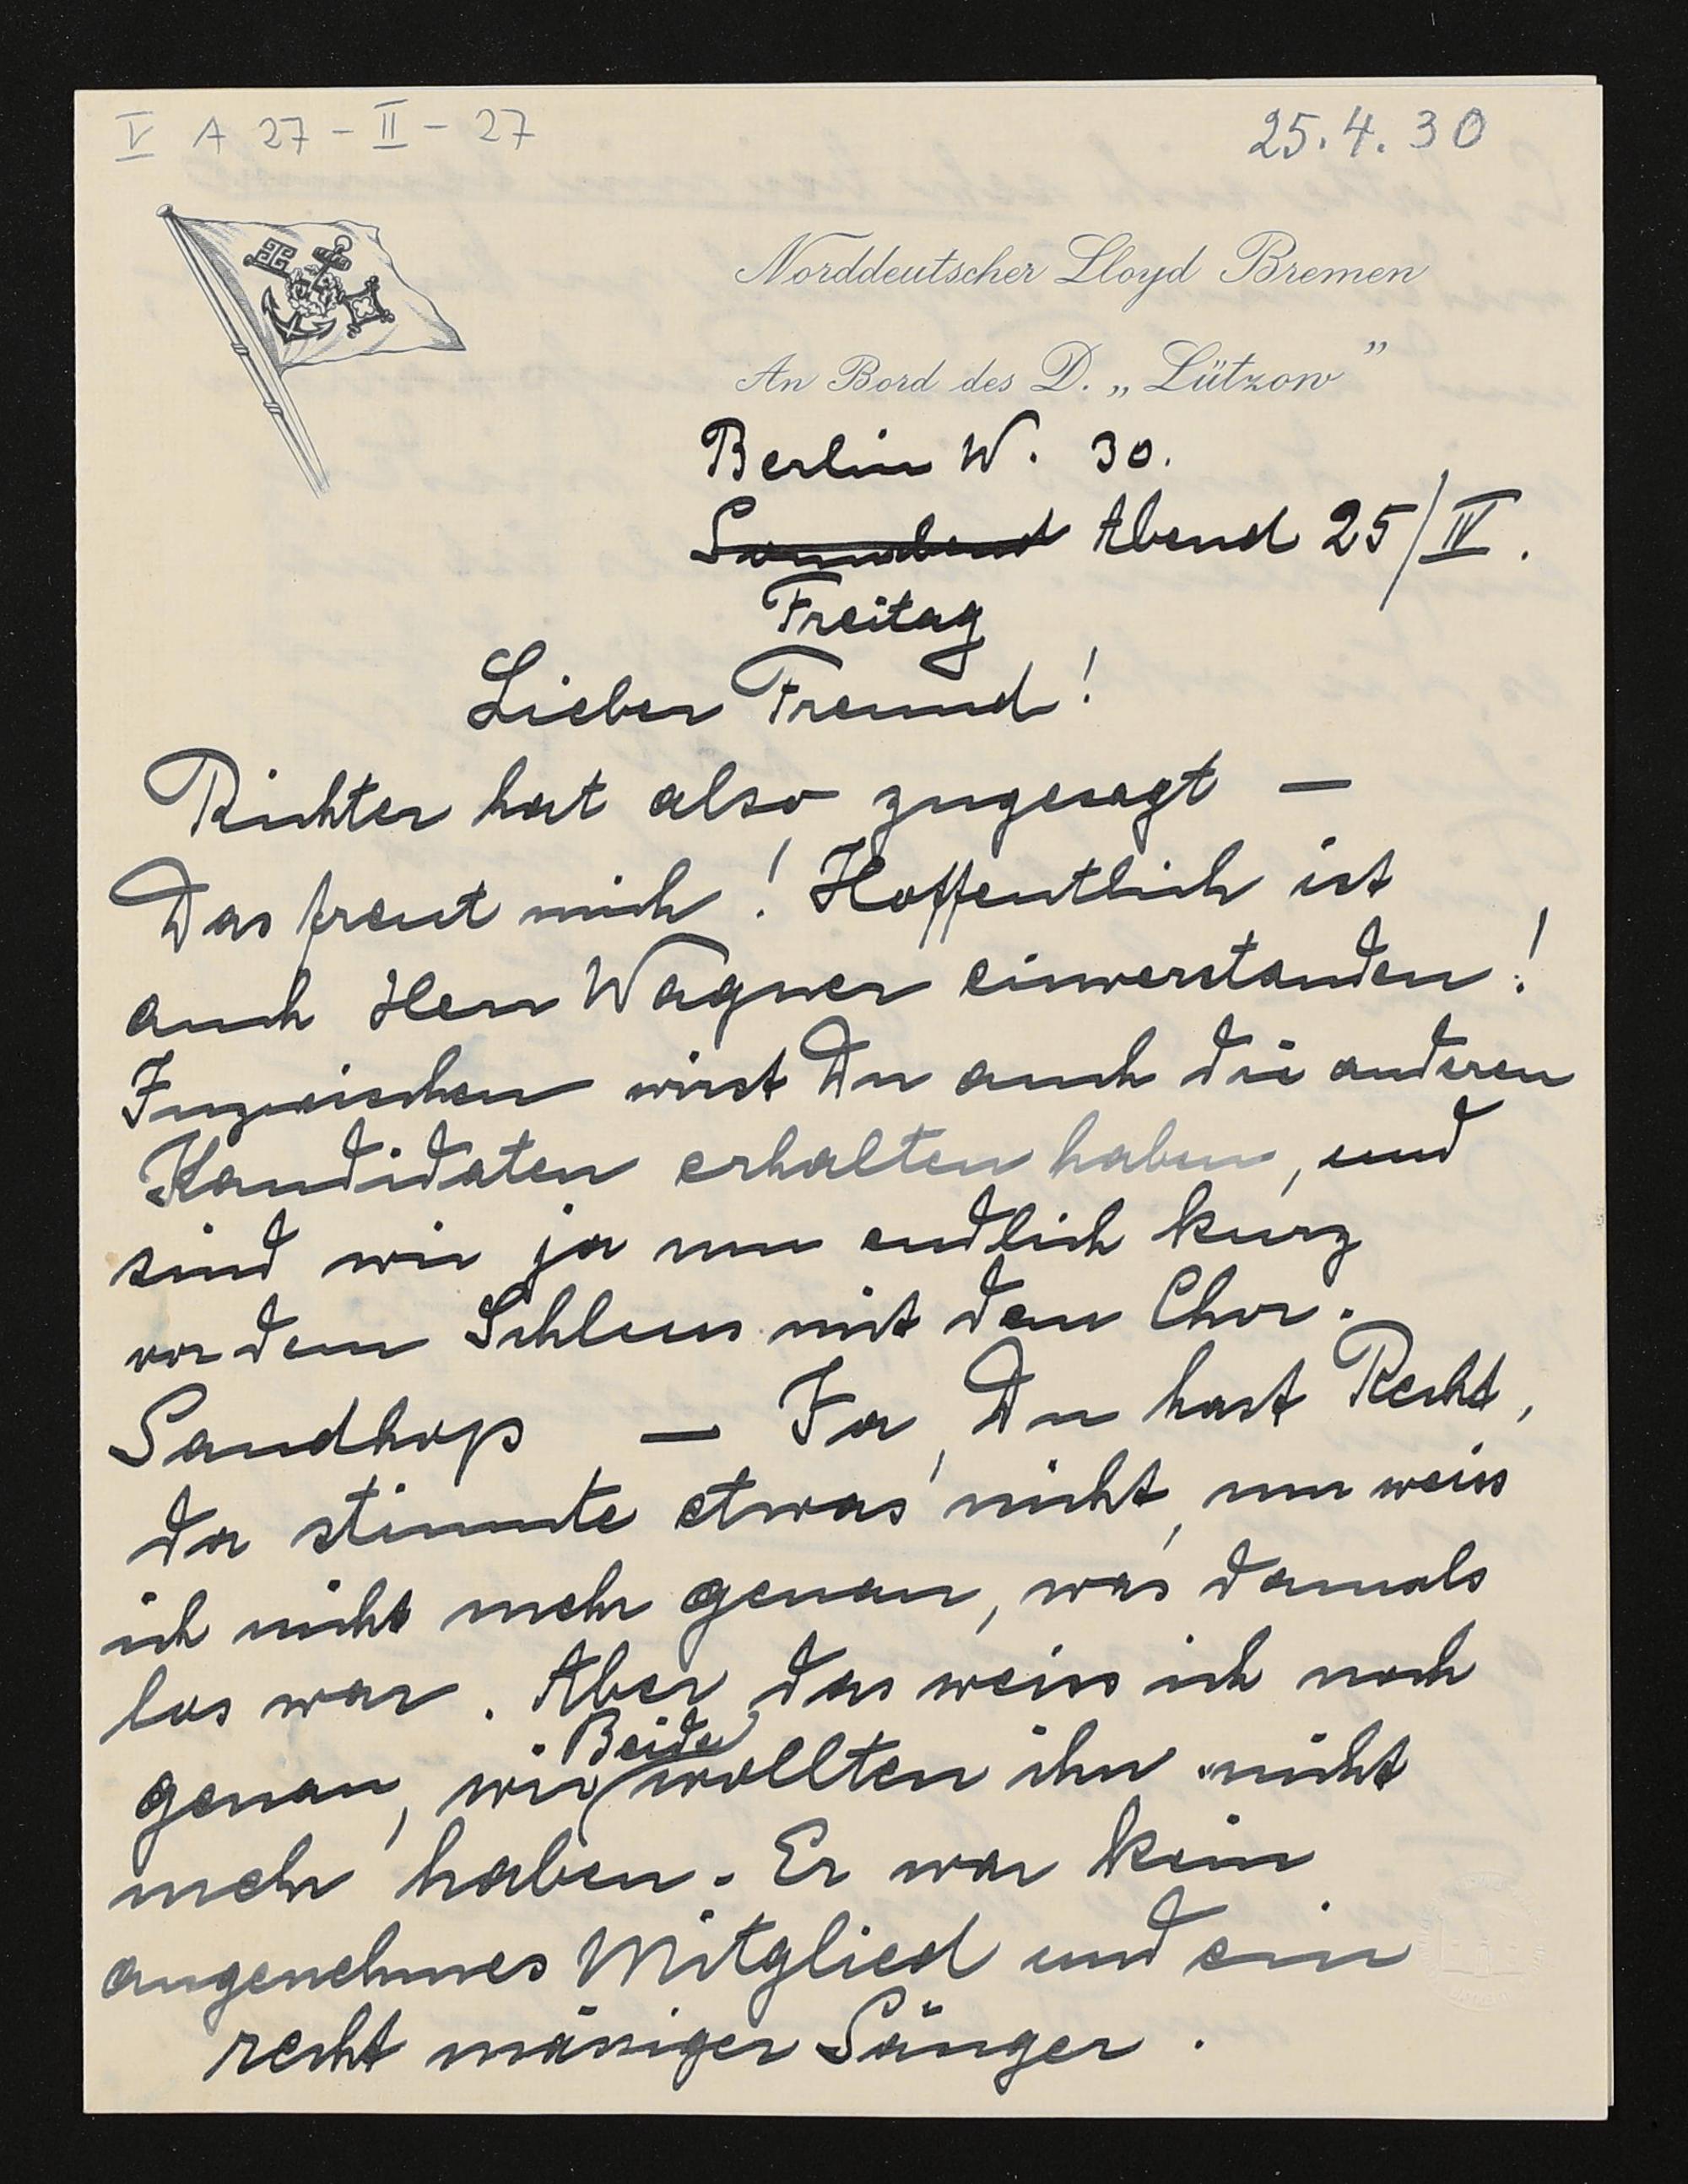 V A 27 - II - 27
25.4.30
Norddeutscher Lloyd Bremen
An Bord des D. „Lützow”
Berlin W. 30.
Sonnabend Abend 25/IV.
Freitag
Lieber Freund!
Richter hat also zugesagt —
Das freut mich! Hoffentlich ist
auch Herr Wagner einverstanden!
Inzwischen wirst Du auch die anderen
Kandidaten erhalten haben, und
sind wir ja nun endlich kurz
vor dem Schluss mit dem Chor.
Sandhop — Ja, Du hast Recht,
da stimmte etwas nicht, nun weiss
ich nicht mehr genau, was damals
los war. Aber das weiss ich noch
genau, wir Beide wollten ihn nicht
mehr haben. Er war kein
angenehmes Mitglied und ein
recht mässiger Sänger.